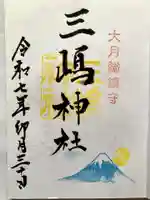 大月總鎮守
三嶋神社
令和七年卯月三十日